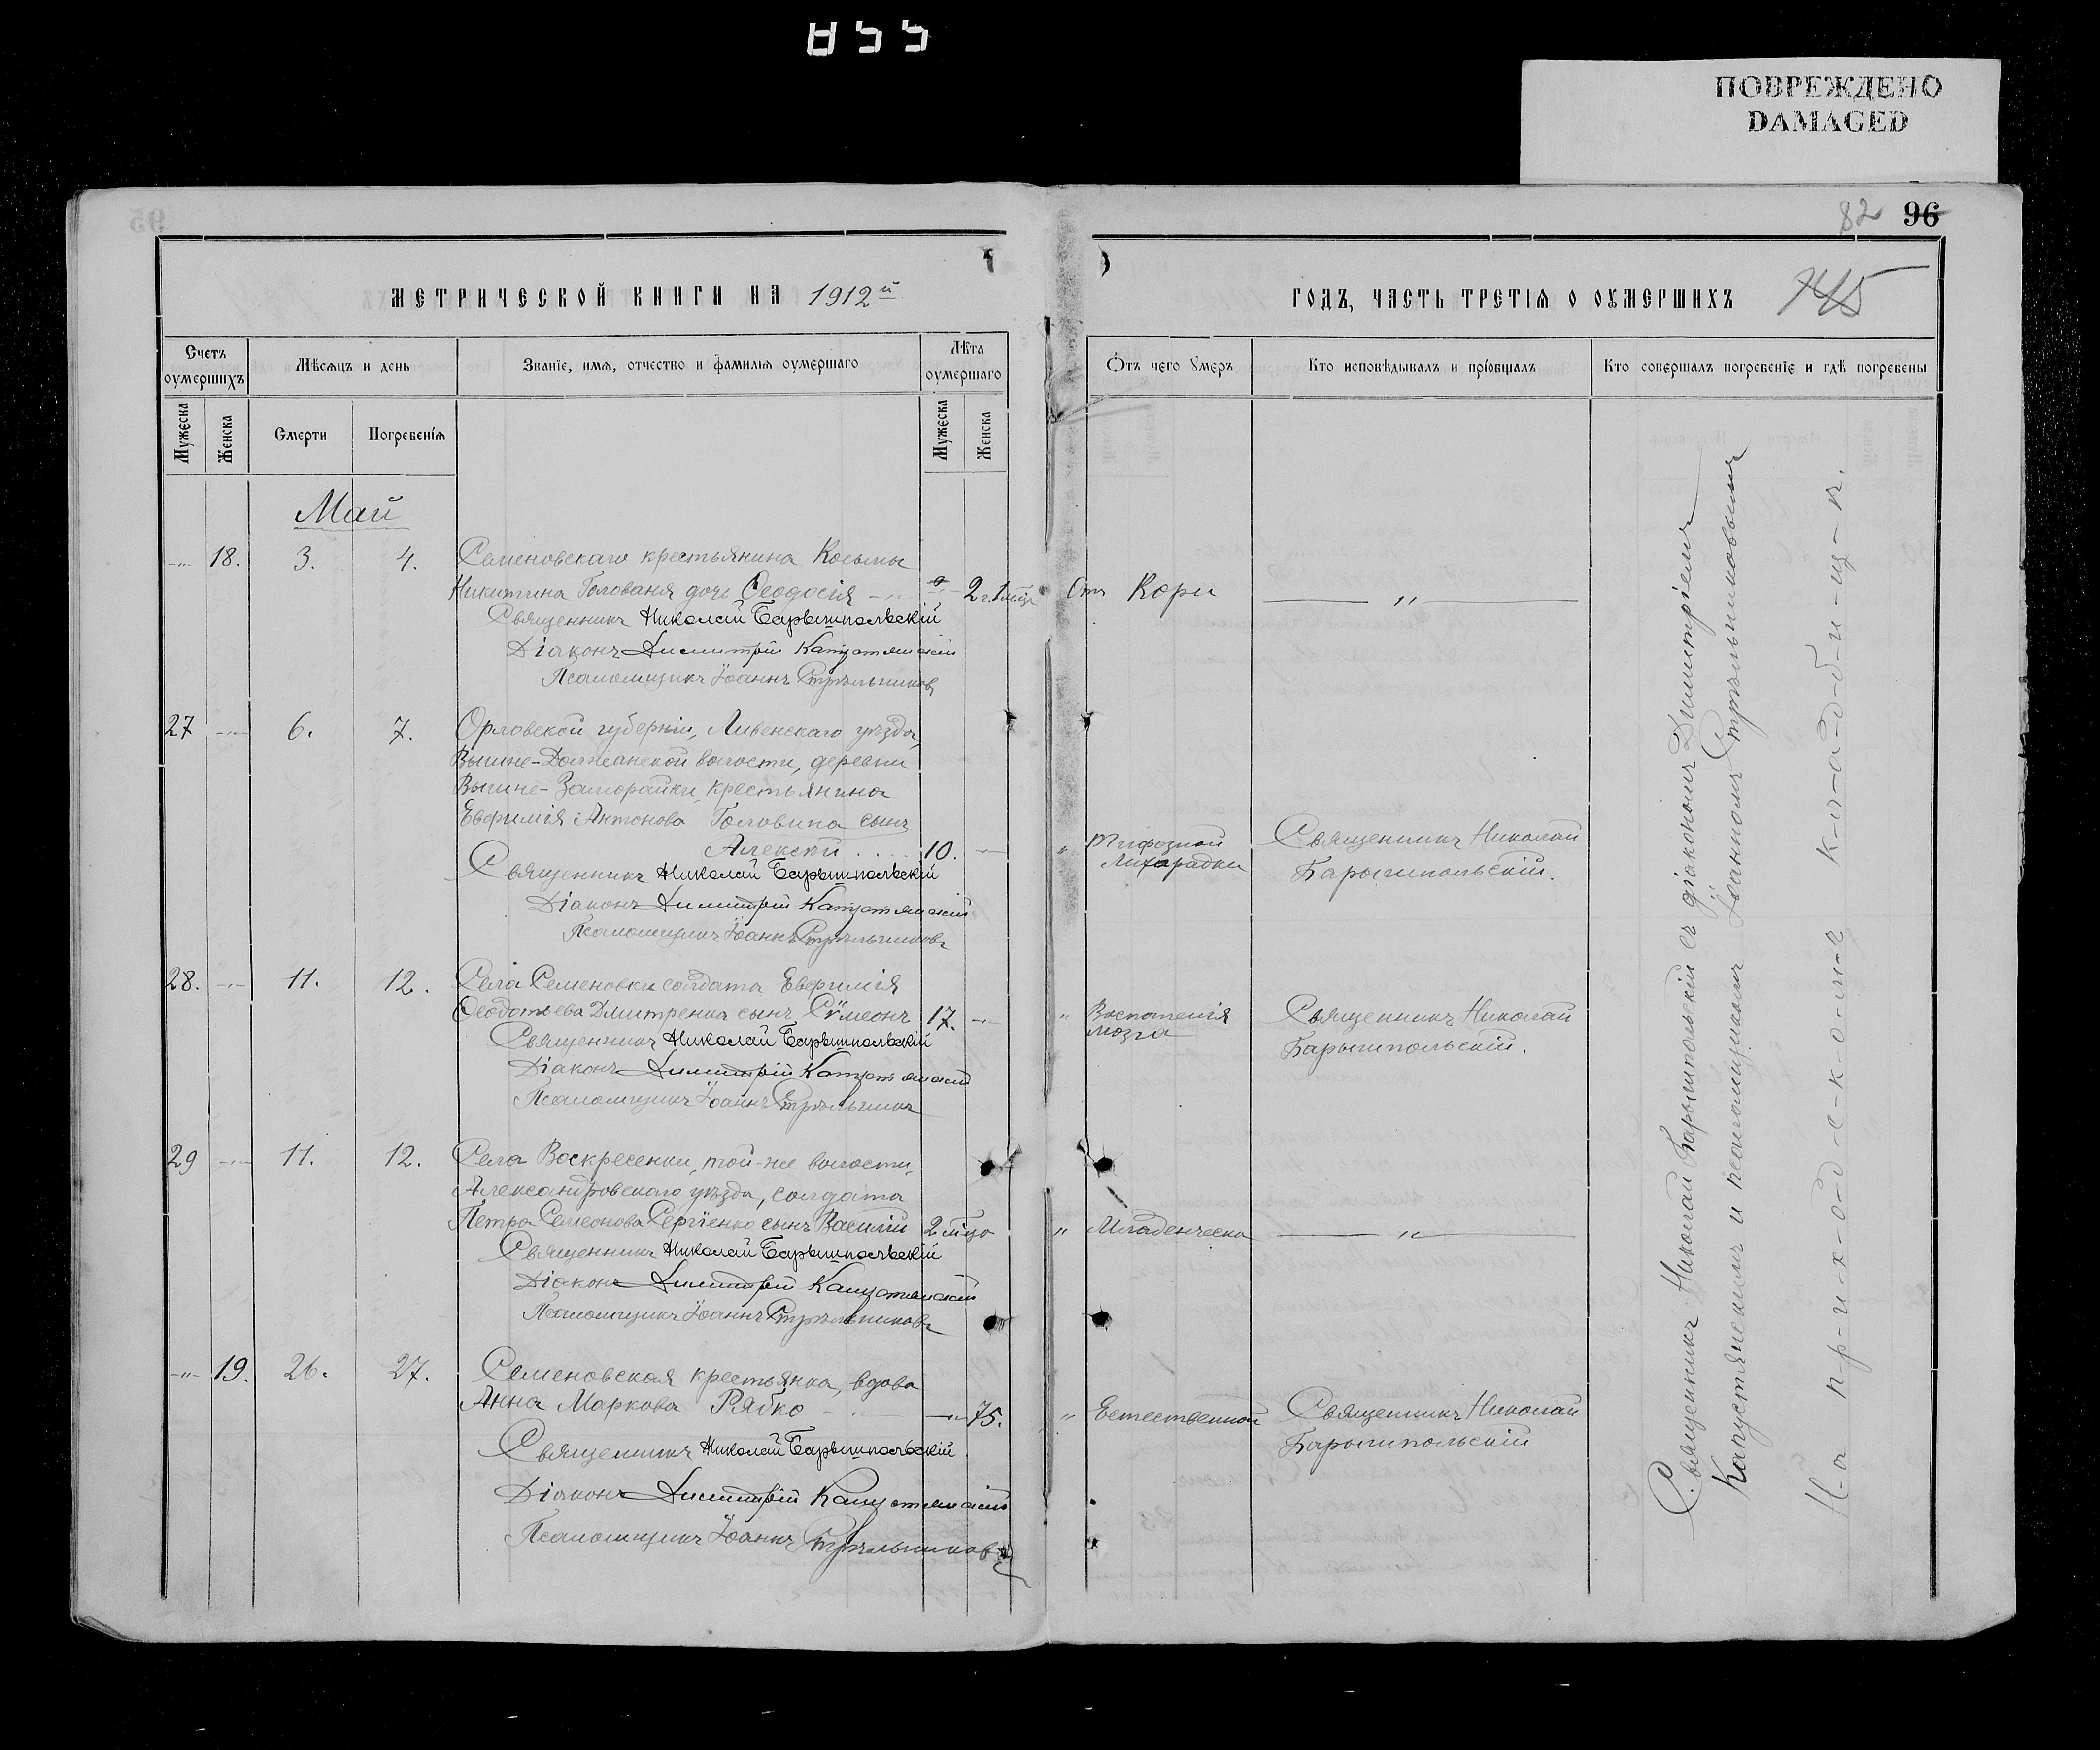 855
ПОВРЕЖДЕНО
DAMAGED
82 96
МЕТРИЧЕСКОЙ КНИГИ НА 1912й
ГОДЪ, ЧАСТЬ ТРЕТІѦ О ОУМЕРШИХЪ 145
Счетъ оумершихъ
Мѣсяцъ и день
Званіе, имя, отчество и фамилія оумершаго
Лѣта оумершаго
Отъ чего умеръ
Кто исповѣдывалъ и пріобщалъ
Кто совершалъ погребеніе и гдѣ погребены
Мужеска
Женска
Смерти
Погребенія
Мужеска
Женска
Май
-"- 18. 3. 4. Семеновскаго крестьянина Косьмы
Никитина Голованя дочь Ѳеодосія -"- 2 г. 1 мѣц. Отъ Кори —"—
Священникъ Николай Барышпольскій
Діаконъ Димитрій Капустянскій
Псаломщикъ Іоаннъ Стрѣльниковъ
27 -"- 6. 7. Орловской губерніи, Ливенскаго уѣзда,
Вышне-Должанской волости, деревни
Вышне-Заморайки, крестьянина
Евфимія Антонова Головина сынъ
Алексѣй . . . 10. -"- " Тифозной Лихорадки Священникъ Николай Барышпольскій.
Священникъ Николай Барышпольскій
Діаконъ Димитрій Капустянскій
Псаломщикъ Іоаннъ Стрѣльниковъ
28. -"- 11. 12. Села Семеновки солдата Евфимія
Ѳеодотьева Дмитренка сынъ Сѵмеонъ 17. -"- " Воспаленія мозга Священникъ Николай Барышпольскій.
Священникъ Николай Барышпольскій
Діаконъ Димитрій Капустянскій
Псаломщикъ Іоаннъ Стрѣльникъ
29 -"- 11. 12. Села Воскресенки, той-же волости,
Александровскаго уѣзда, солдата
Петра Семеонова Сергіенко сынъ Василій 2 мѣц. " Младенческа —"—
Священникъ Николай Барышпольскій
Діаконъ Димитрій Капустянскій
Псаломщикъ Іоаннъ Стрѣльниковъ
-"- 19. 26. 27. Семеновская крестьянка, вдова
Анна Маркова Рябко -"- -"- 75. " Естественной Священникъ Николай Барышпольскій
Священникъ Николай Барышпольскій
Діаконъ Димитрій Капустянскій
Псаломщикъ Іоаннъ Стрѣльниковъ
Священникъ Николай Барышпольскій съ діакономъ Димитріемъ
Капустянскимъ и псаломщикомъ Іоанномъ Стрѣльниковымъ
На п-р-и-х-о-д-с-к-о-м-ъ к-л-а-д-б-и-щ-ѣ.